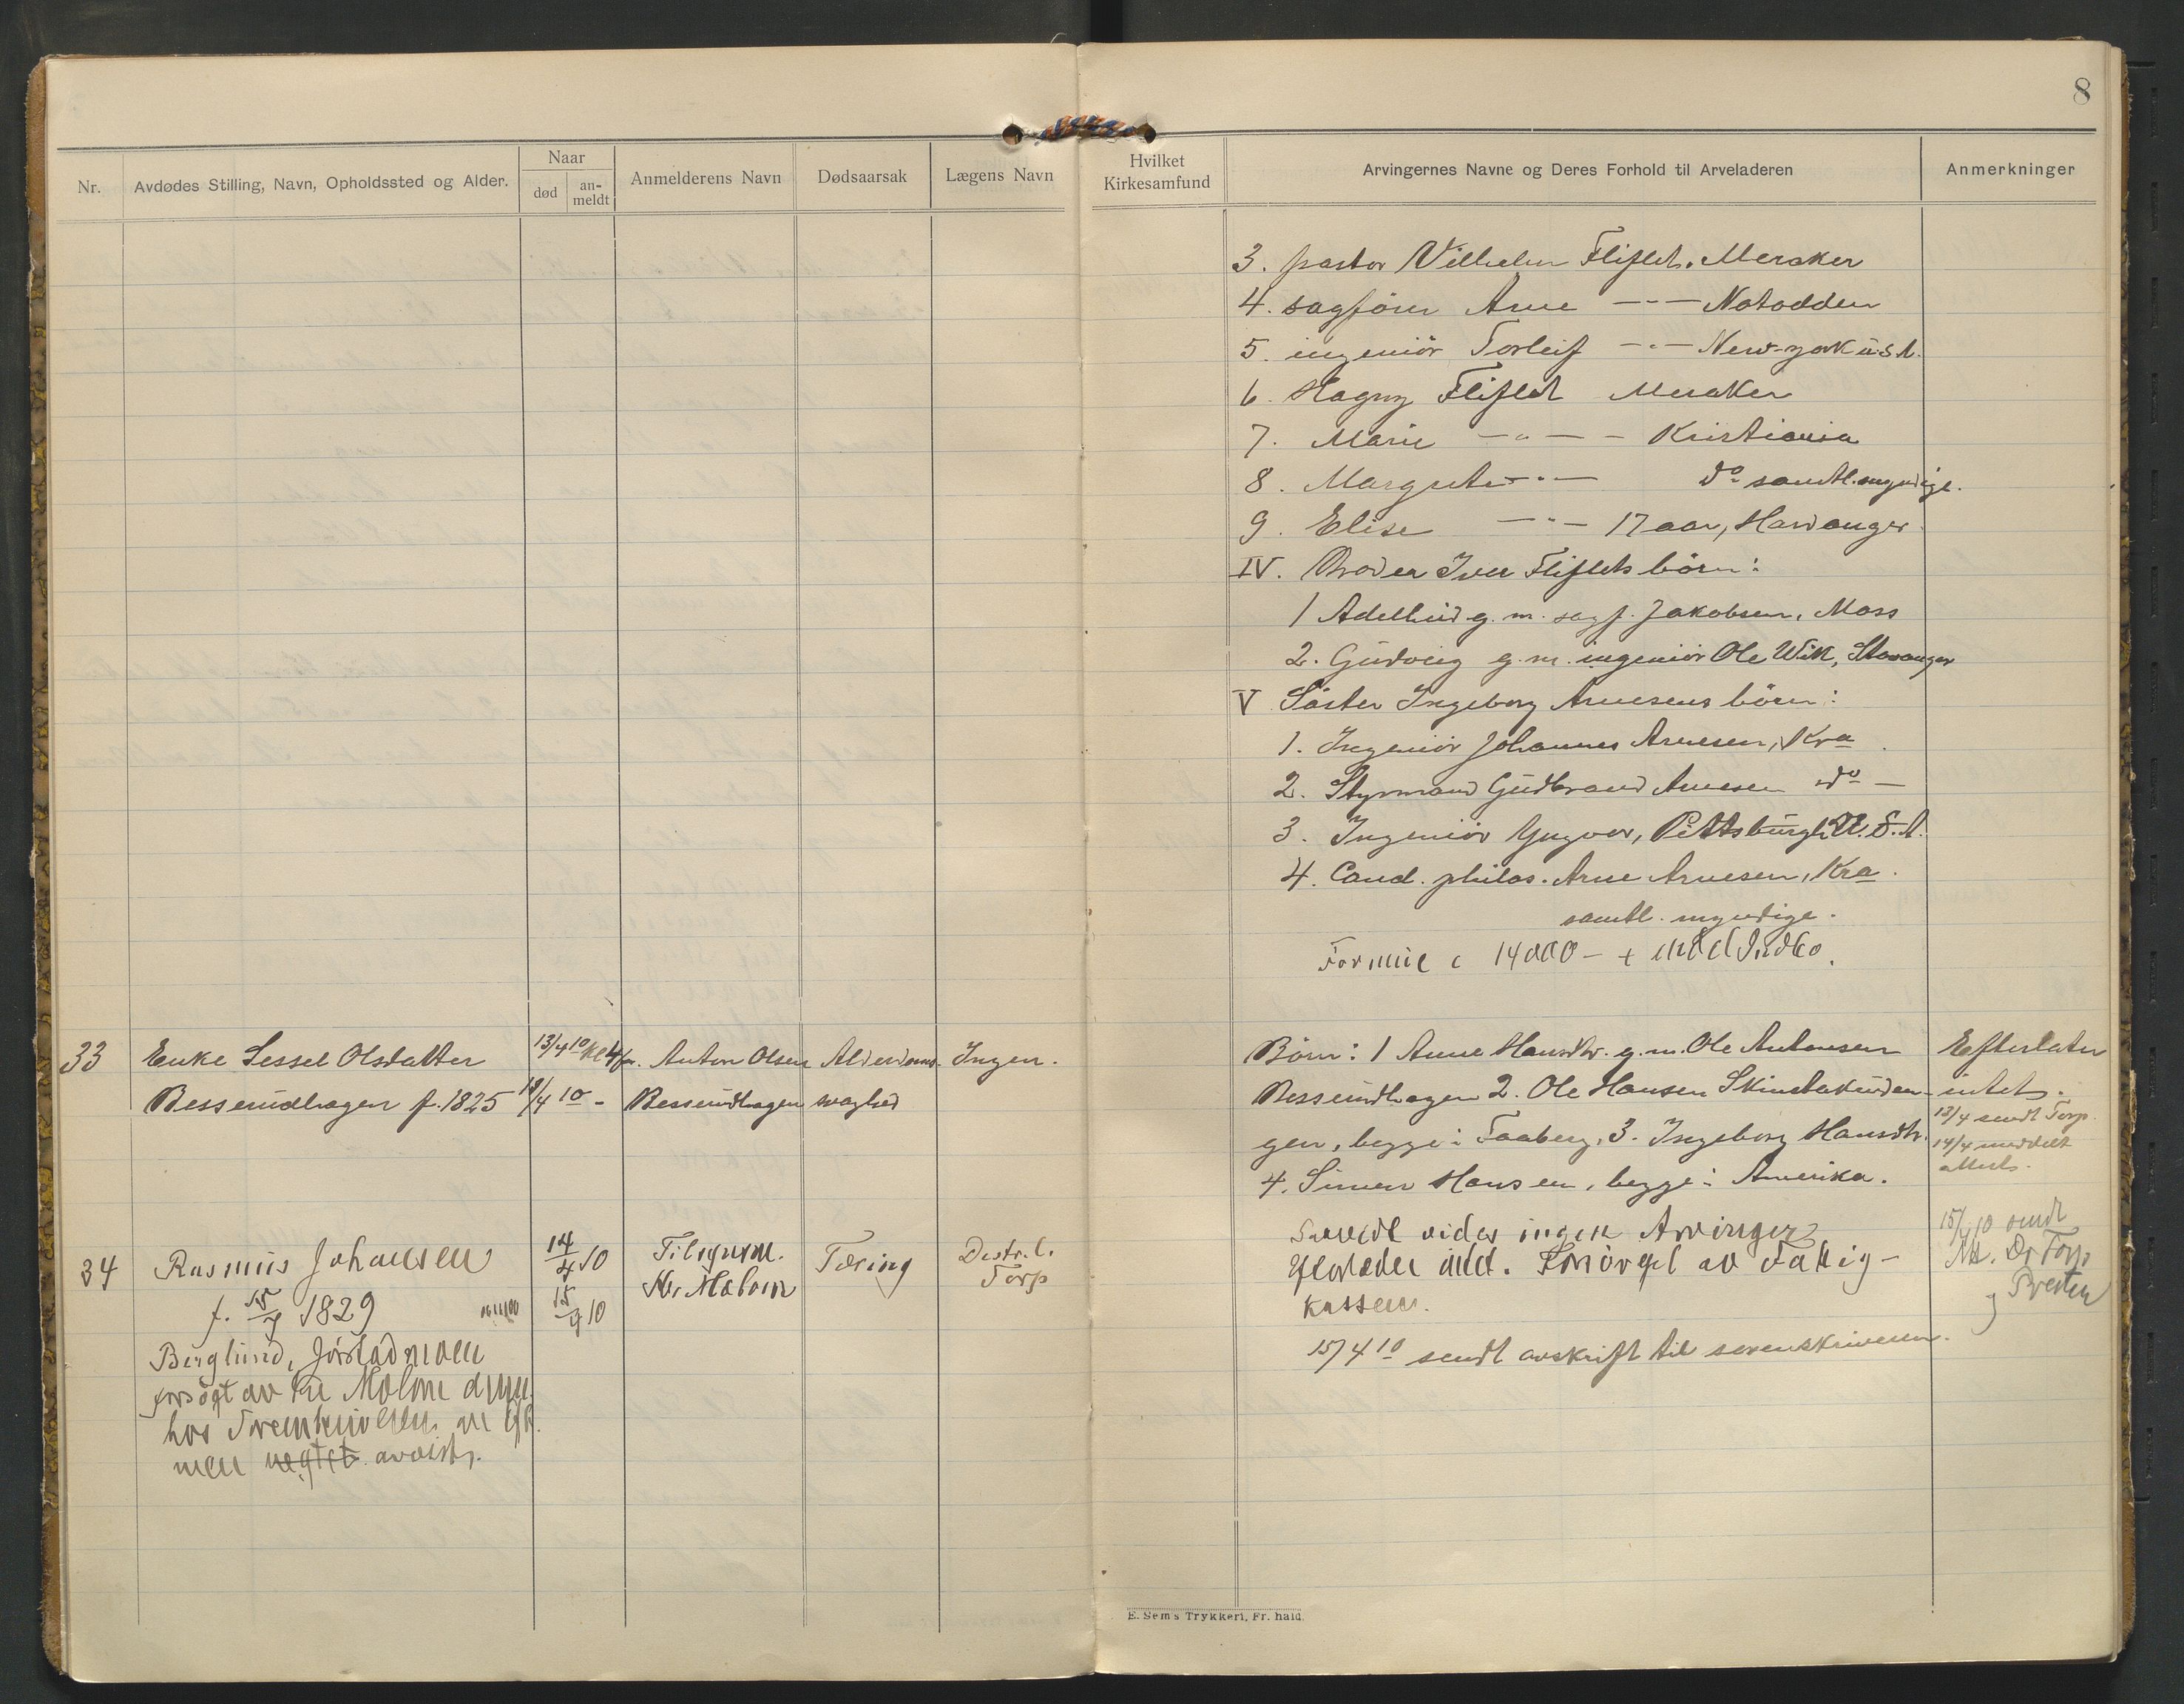 8
Nr.
Avdødes Stilling, Navn, Opholdssted og Alder.
Naar
død
an-
meldt
Anmelderens Navn
Dødsaarsak
Lægens Navn
Hvilket
Kirkesamfund
Arvingernes Navne og Deres Forhold til Arveladeren
Anmerkninger
3. pastor Vilhelm Fliflet. Meraker
4. sagfører Arne —"— Notodden
5. ingeniör Torleif —"— New-york U.S.A.
6. Hagny Fliflet Meraker
7. Marie —"— — Kristiania
8. Margrete —"— do samtl. myndige.
9. Elise —"— 17 aar, Hardanger
IV. Broder Iver Fliflets börn:
1 Adelheid g. m. sagf. Jakobsen, Moss
2. Gudveig g. m. ingeniör Ole Wik, Stavanger
V Söster Ingeborg Arnesens börn:
1. Ingeniör Johannes Arnesen, Kra.
2. Styrmand Gudbrand Arnesen do —
3. Ingeniör Yngvar, Pittsburgh U.S.A.
4. Cand. philos. Arne Arnesen, Kra.
samtl. myndige.
Formue c 14000 – + med Indbo.
33
Enke Sessel Olsdatter
Bessundhagen f. 1825
13/4 10 Kl 4 fm.
13/4 10 -
Anton Olsen
Bessundhagen
Alderdoms-
svaghed
Ingen.
Börn: 1 Anne Hansdtr. g. m. Ole Antonsen
Bessundhagen 2. Ole Hansen
gen, begge i Faaberg, 3. Ingeborg Hansdtr.
4. Simen Hansen, begge i Amerika.
Efterlater
intet.
13/4 sendt Torp.
14/4 meddelt
attest.
34
Rasmus Johansen
f. 15/9 1829
Berglund, Jörstadmoen
forsögt av Kr Malone
hos Sorenskriveren
men negtet avvist.
14/4 10
15/4 10
Kr. Malone
Tæring
Distr. l.
Torp
Saavidt vides ingen Arvinger
Efterlader intet. Forsörget av Fattig-
kassen.
15/4 10 sendt avskrift til sorenskriveren.
15/4 10 sendt
Dr Torp
og Presten
E. Sems Trykkeri, Fr. hald.